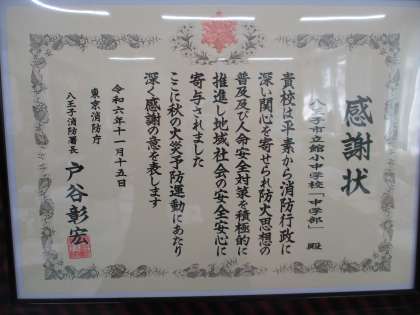 感謝状
八王子市立館小中学校「中学部」 殿
貴校は平素から消防行政に
深い関心を寄せられ防火思想の
普及及び人命安全対策を積極的に
推進し地域社会の安全安心に
寄与されました
ここに秋の火災予防運動にあたり
深く感謝の意を表します
令和六年十一月十五日
東京消防庁
八王子消防署長 戸谷彰宏